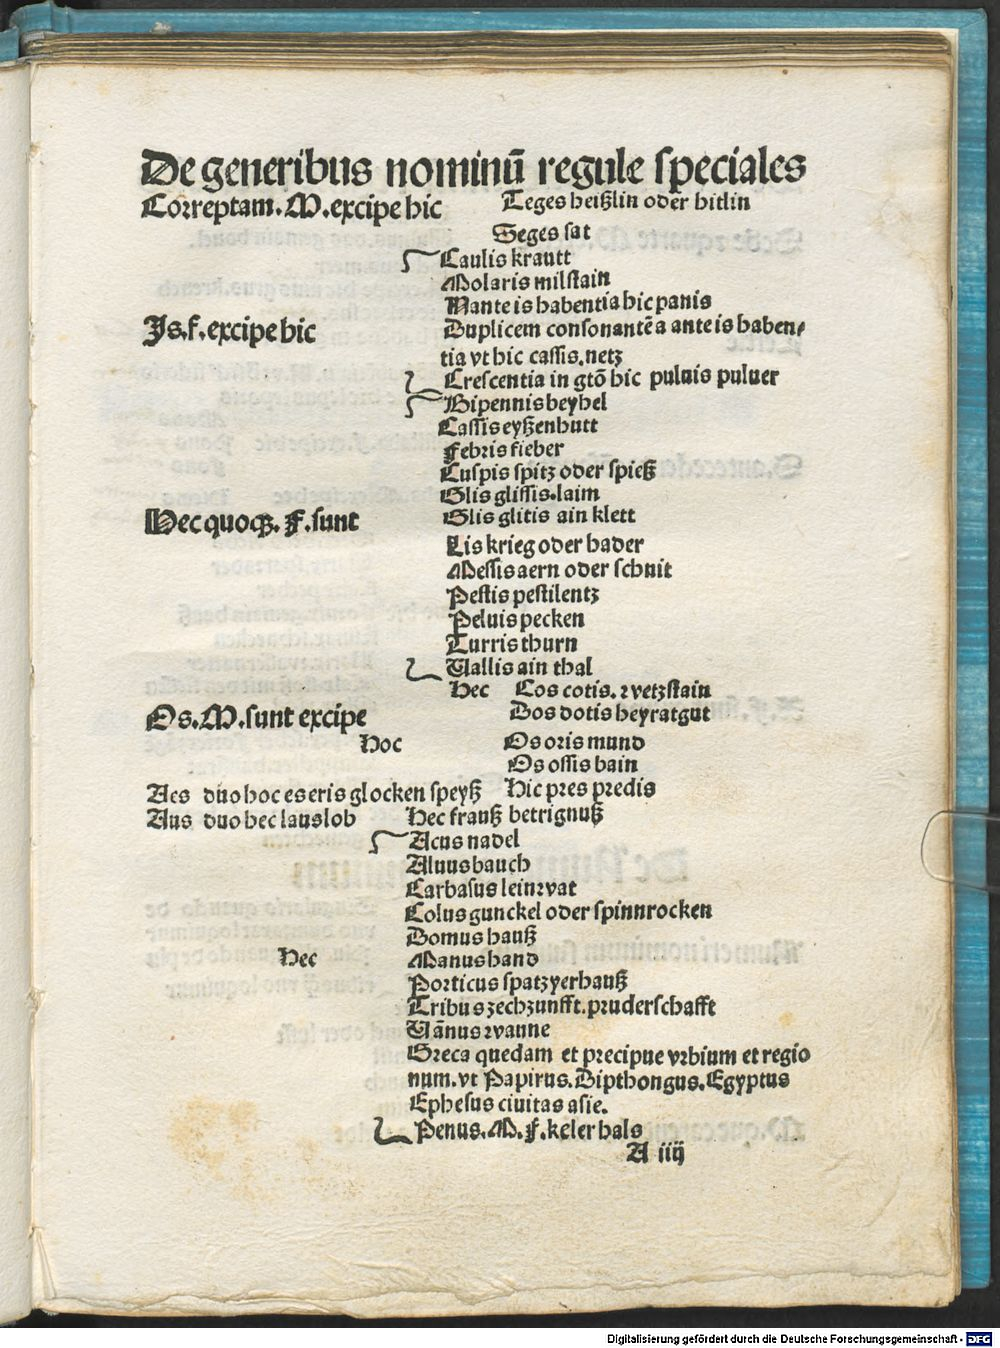 De generibus nominū regule speciales
Correptam. M. excipe hic Teges heißlin oder hitlin
Seges sat
Caulis krautt
Molaris milstain
N ante is habentia hic panis
Js. f. excipe hic Duplicem consonantē a ante is haben⸗
tia vt hic cassis. netz
Crescentia in gtō hic puluis puluer
Bipennis beyhel
Cassis eyßenhutt
Febris fieber
Cuspis spitz oder spieß
Glis glissis. laim
Hec quoqꝫ. F. sunt Glis glitis ain klett
Lis krieg oder hader
Messis aern oder schnit
Pestis pestilentz
Peluis pecken
Turris thurn
Uallis ain thal
Hec Cos cotis. wetzstain
Os. M. sunt excipe Dos dotis heyratgut
Hoc Os oris mund
Os ossis bain
Aes duo hoc es eris glocken speyß Hic pres predis
Aus duo hec laus lob Hec frauß betrignuß
Acus nadel
Aluus bauch
Carbasus leinwat
Colus gunckel oder spinnrocken
Domus hauß
Hec Manus hand
Porticus spatzyerhauß
Tribus zechzunfft. pruderschafft
Uānus wanne
Greca quedam et precipue vrbium et regio
num. vt Papirus. Dipthongus. Egyptus
Ephesus ciuitas asie.
Penus. M. F. keler hals
A iiij
Digitalisierung gefördert durch die Deutsche Forschungsgemeinschaft - DFG